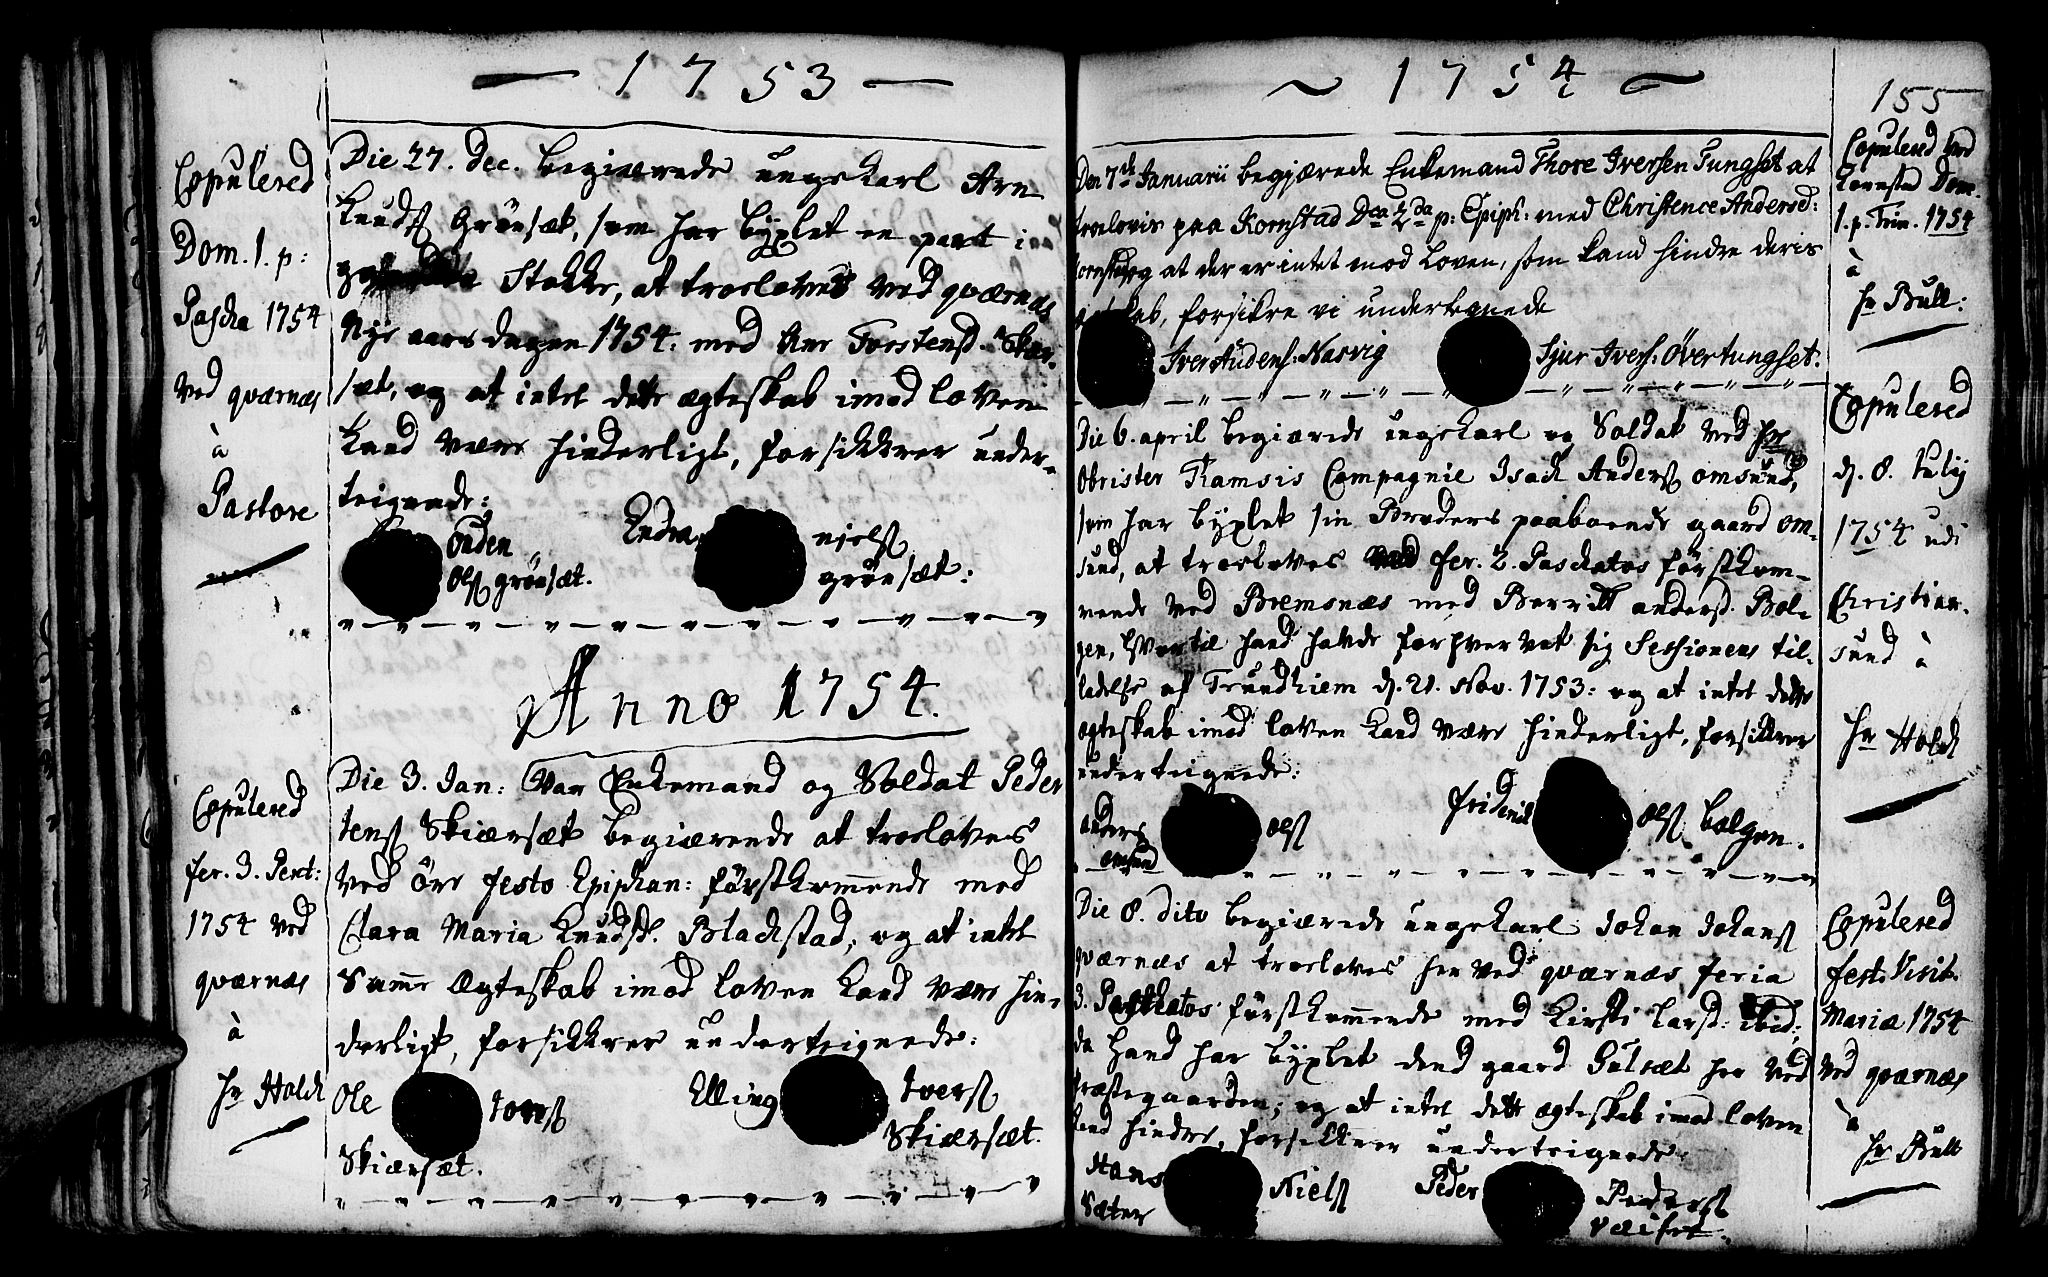 — 1753 —
Copulered
Dom. 1. p:
Pascha 1754
ved qværnæs
à
Pastore
Die 27. Dec. begiærede ungekarl Arn
Knuds Grönsæt, som har byxlet en part i
Stokke, at troeloves ved qværnæs
Nye aars dagen 1754. med Ane Torstensd. Skiær-
sæt, og at intet dette ægteskab imod loven
kand være hinderligt, forsikkrer under-
teignede:
Auden Ols grönsæt.
niels grönsæt:
Anno 1754.
Copulered
fer. 3. Pent:
1754 ved
qværnæs
à
hr Holck
Die 3. Jan: var Enkemand og Soldat Peder
Jens Skiærsæt begiærende at troeloves
ved Öre festo Epiphan: förstkommende med
Clara Maria Knudsd. Blachstad, og at intet
Samme Ægteskab imod loven kand være hin-
derligt, forsikkrer underteignede:
Ole Ivers
Skiærsæt.
Elling Ivers
Skiærsæt.
~ 1754 ~
155
Den 7de Januarii begjærede Enkemand Thore Iversen Tungset at
troelovis paa Kornstad Dca 2da p: Epiph: med Christence Andersd:
og at der er intet mod Loven, som kand hindre deris
forsikre vi undertegnede
Iver Audens: Nasvig
Sjur Ivers: Övertungset.
Copulered ved
Kornstad Dom.
1. p. Trin. 1754
à
hr Bull:
Die 6. april begiærede ungekarl og Soldat ved hr
Obrister Compagnie Isach Anders omsund,
som har byxlet sin Broders paaboende gaard om-
sund, at troeloves ved fer. 2. Paschatos förstkom-
mende ved Bremsnæs med Berrit andersd. Bol-
gen, hvortil hand hafde forhvervet sig Sessionens til-
ladelse af Trundhiem d. 21. Nov. 1753: og at intet dette
ægteskab imod loven kand være hinderligt, forsikkrer
underteignede:
anders Ols
omsund
fridrich Ols bolgen.
Copulered
d. 8. July
1754 udi
Christian-
sund à
hr Holck
Die 8. dito begiærede ungekarl Johan Johans
qværnæs at troeloves her ved qværnæs feria
3. Paschatos förstkommende med Kirsti Larsd: ibid:
da hand har byxlet dend gaard Gulsæt her ved
Præstegaarden; og at intet dette ægteskab imod loven
kand hindre, forsikkrer undertegnede:
Hans Niels
Sæter
Peder Peders
Copulered
fest: Visit.
Mariæ 1754
ved qværnæs
à
hr Bull